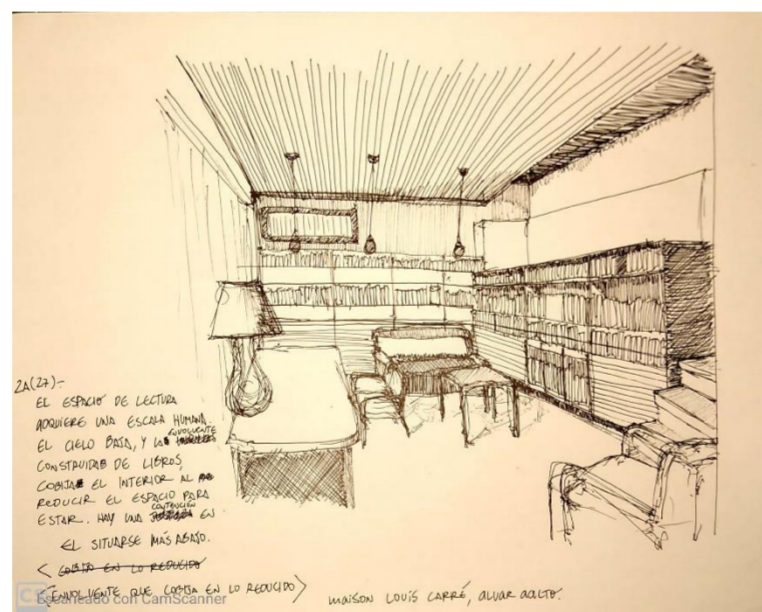 2A(27)-
EL ESPACIO DE LECTURA
ADQUIERE UNA ESCALA HUMANA.
EL CIELO BAJA, Y LA ENVOLVENTE
CONSTRUIDA DE LIBROS,
COBIJA EL INTERIOR AL
REDUCIR EL ESPACIO PARA
ESTAR. HAY UNA CONTENCIÓN EN
EL SITUARSE MÁS ABAJO.
< COBIJO EN LO REDUCIDO
<ENVOLVENTE QUE COBIJA EN LO REDUCIDO>
maison Louis Carré, alvar aalto.
CS Escaneado con CamScanner